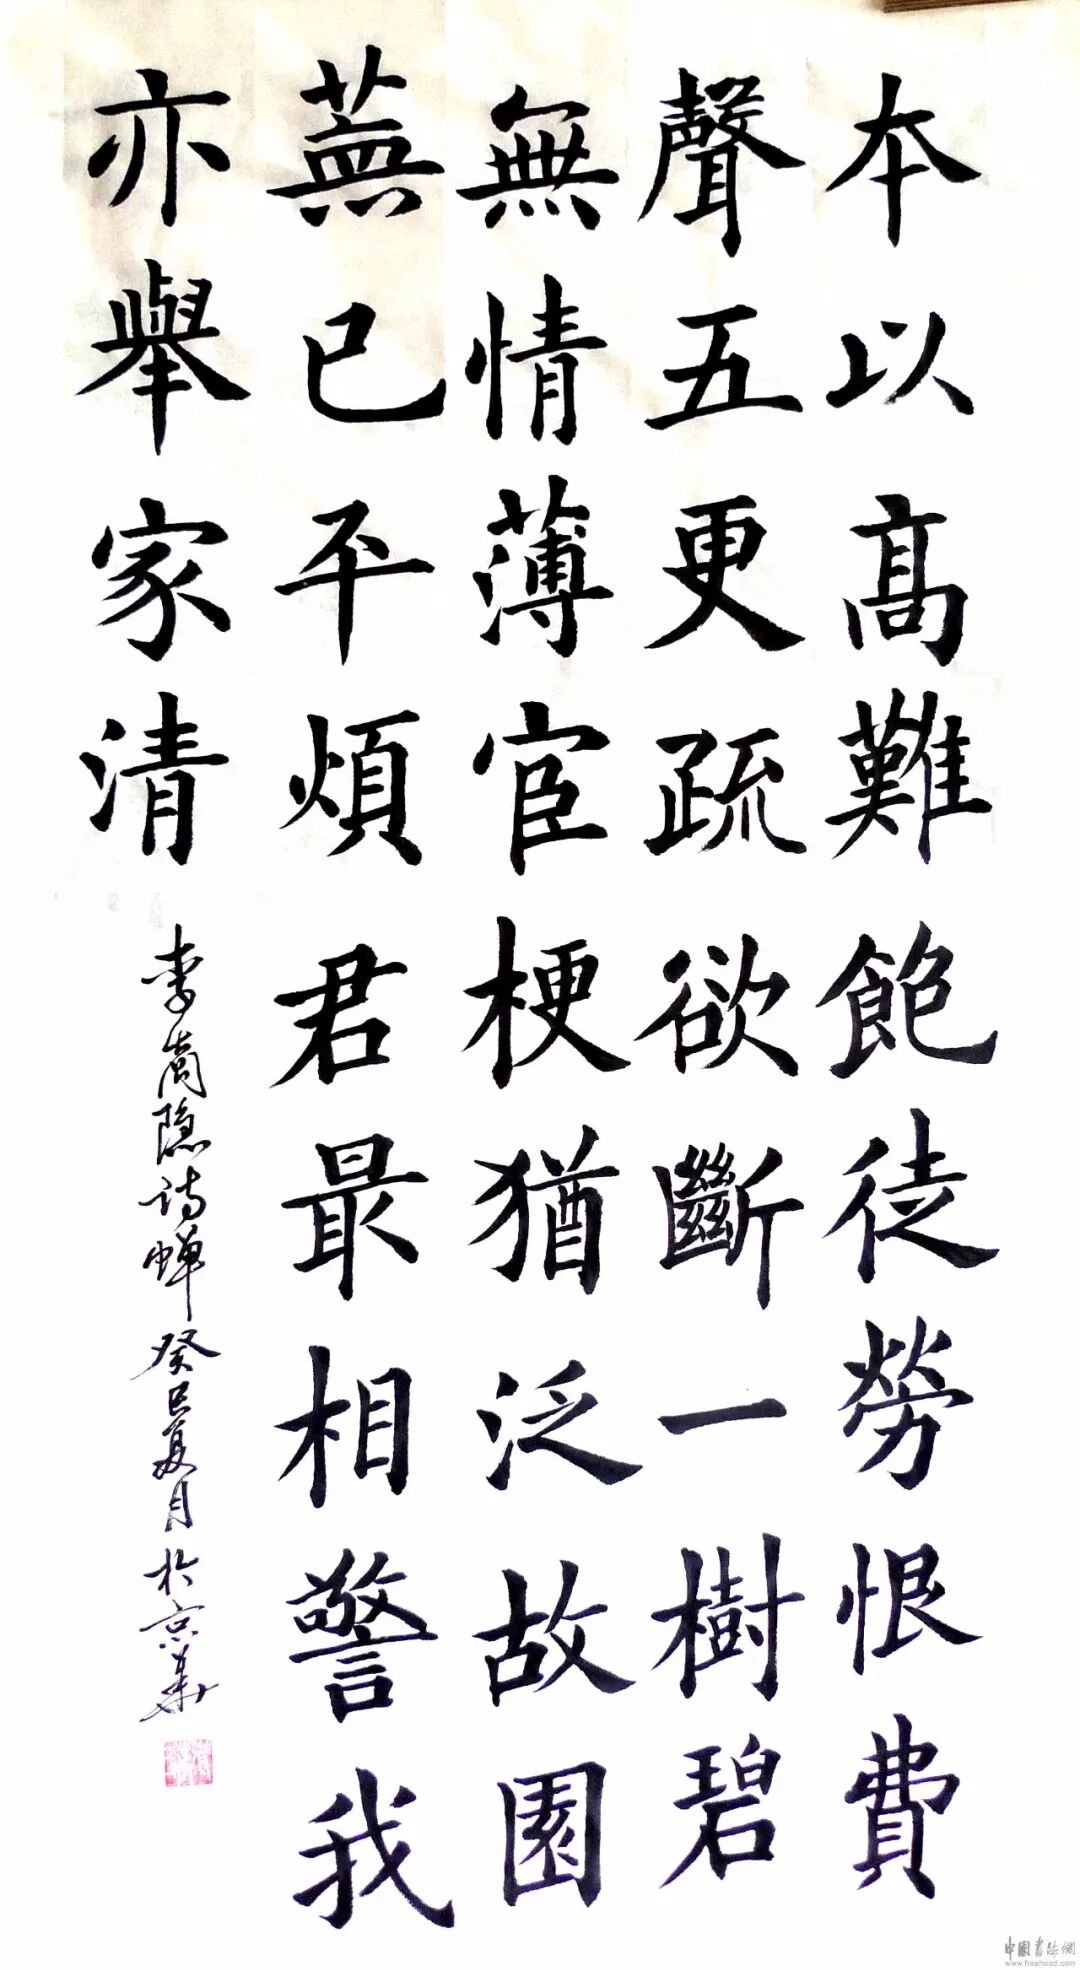 本以高難飽徒勞恨費
聲五更疏欲斷一樹碧
無情薄宦梗猶泛故園
蕪已平煩君最相警我
亦舉家清
李商隐诗蝉癸巳夏月於京華
中國書法網
www.freehead.com